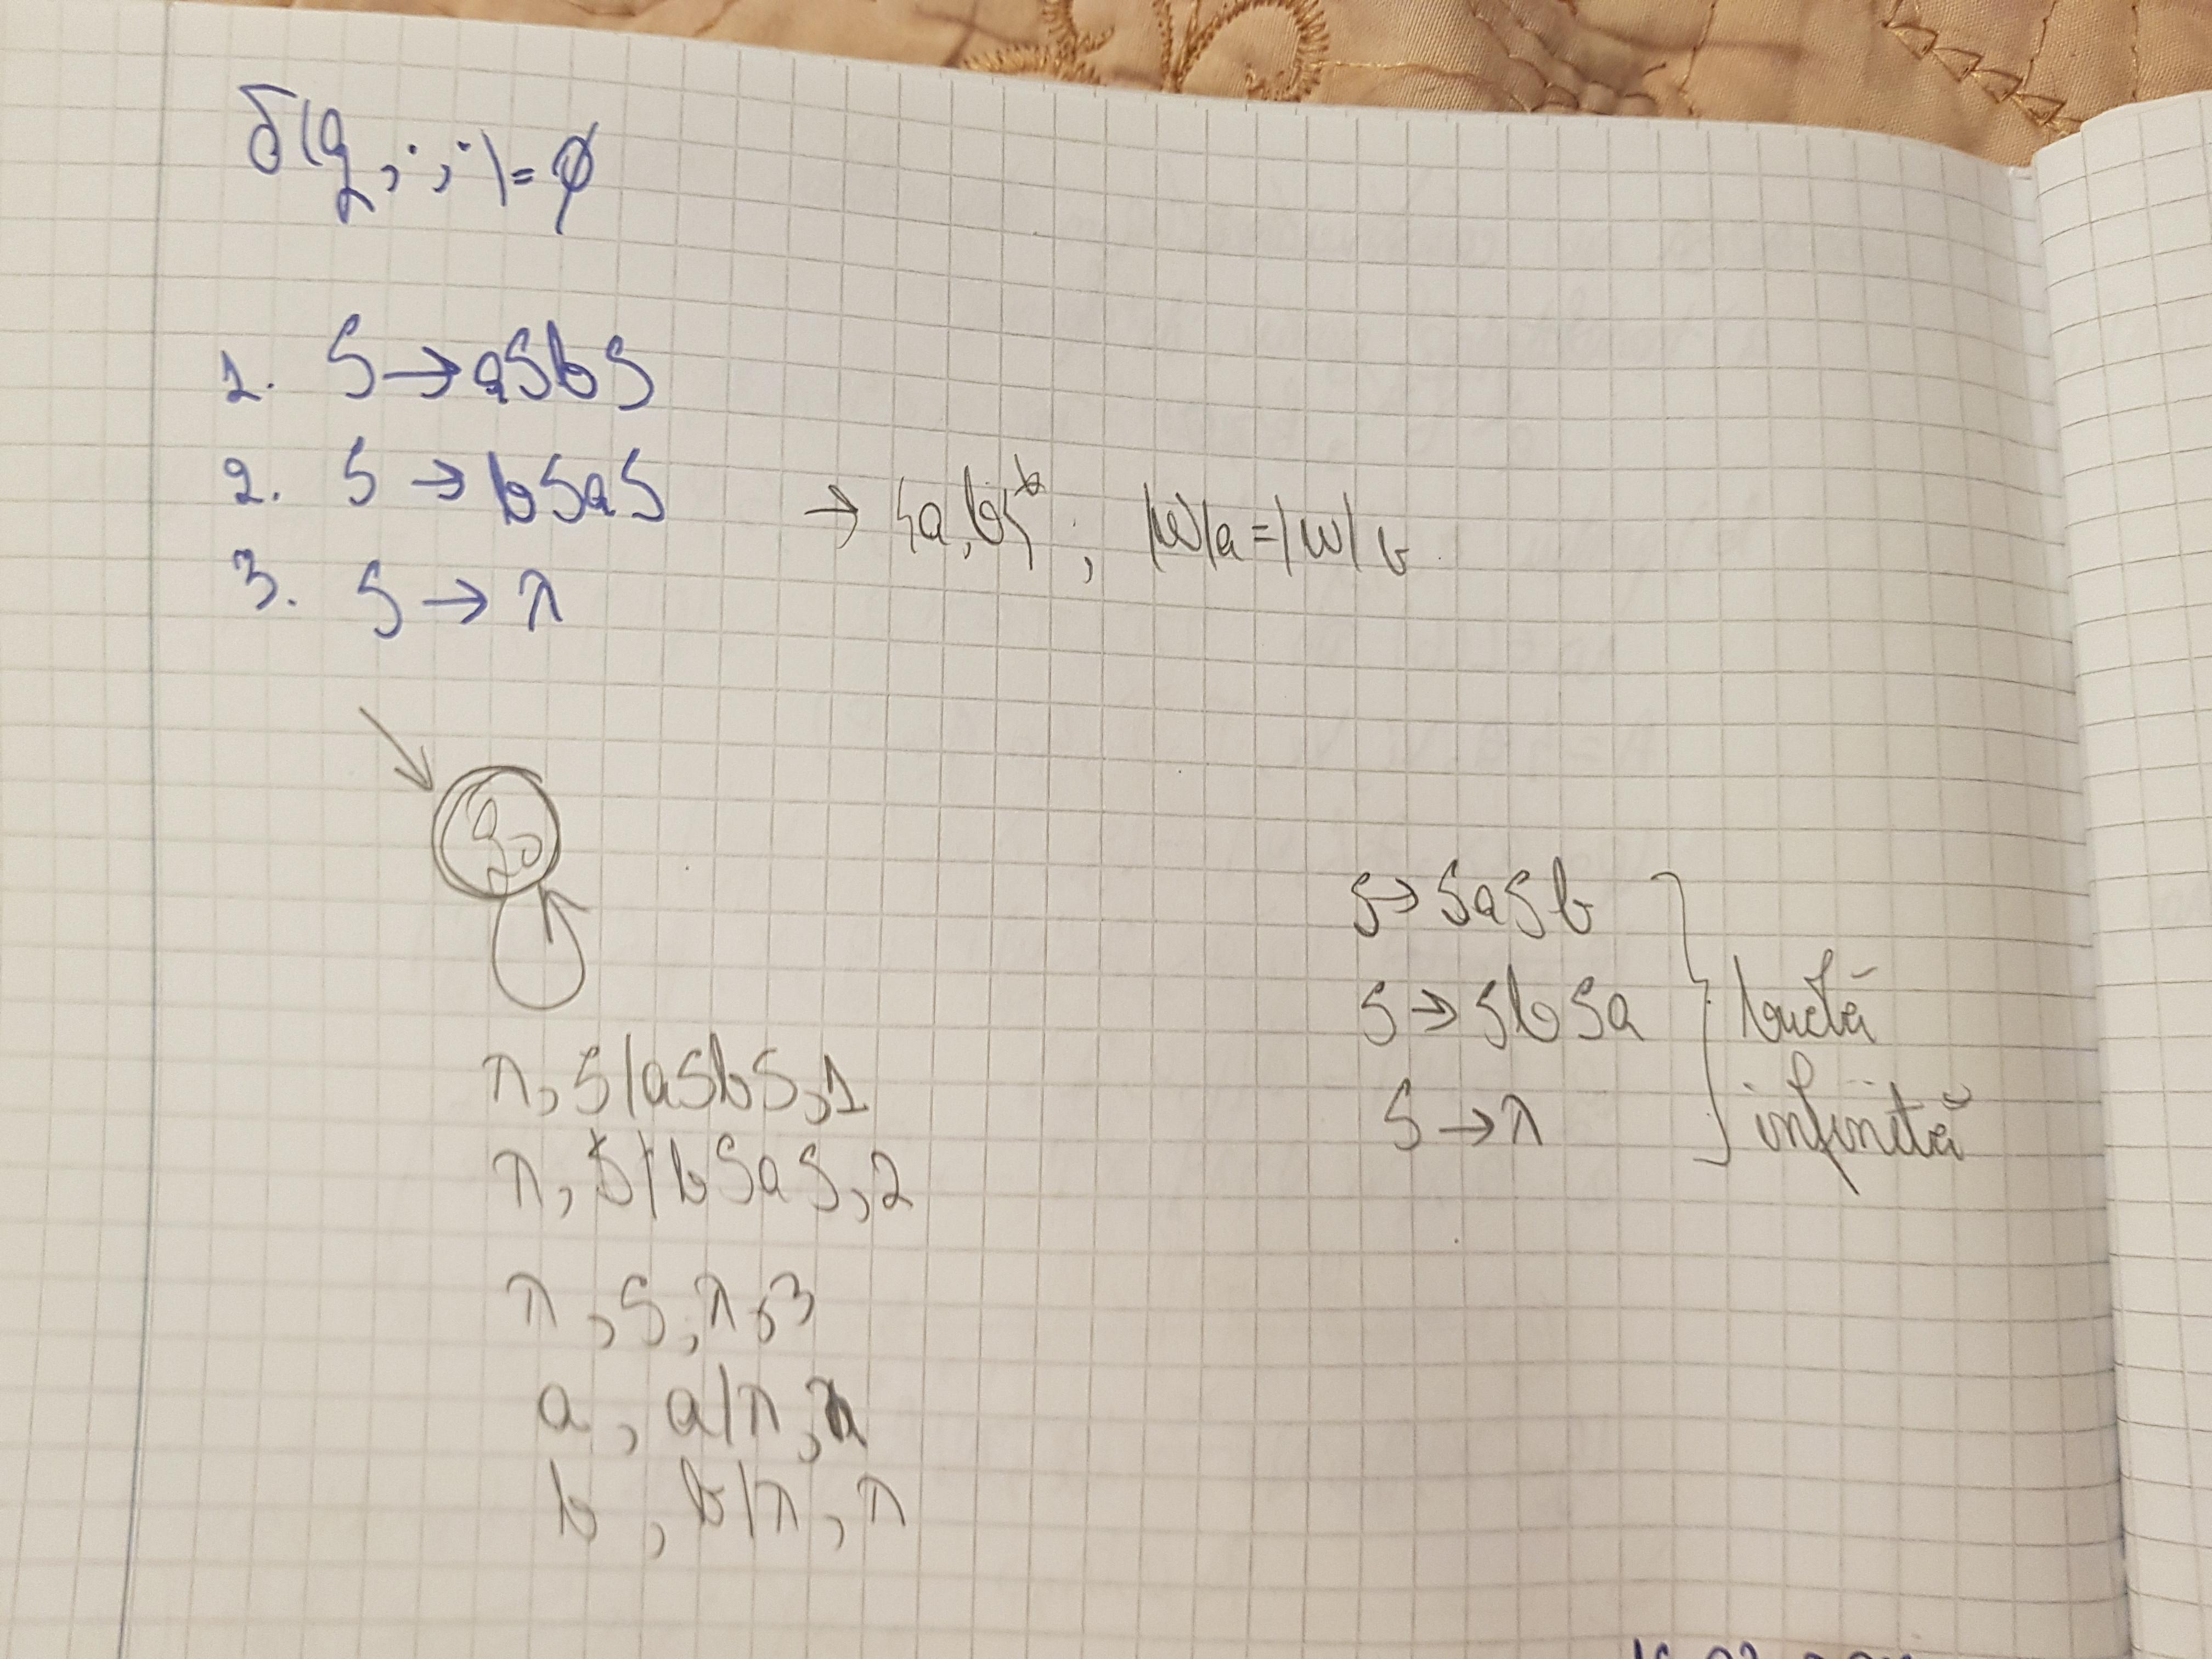 δ(q, ·, ·) = ∅
1. S → aSbS
2. S → bSaS
→ {a,b}*, |w|a = |w|b
3. S → λ
q0
λ, S/aSbS, 1
λ, S/bSaS, 2
λ, S, λ, 3
a, a/λ, λ
b, b/λ, λ
S → SaSb
S → SbSa
S → λ
buclă
infinită